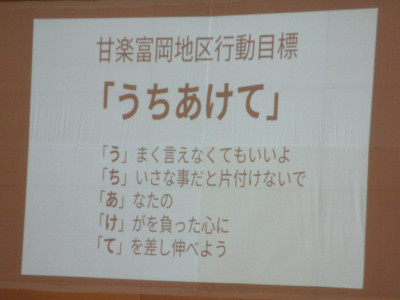 甘楽富岡地区行動目標
「うちあけて」
「う」まく言えなくてもいいよ
「ち」いさな事だと片付けないで
「あ」なたの
「け」がを負った心に
「て」を差し伸べよう